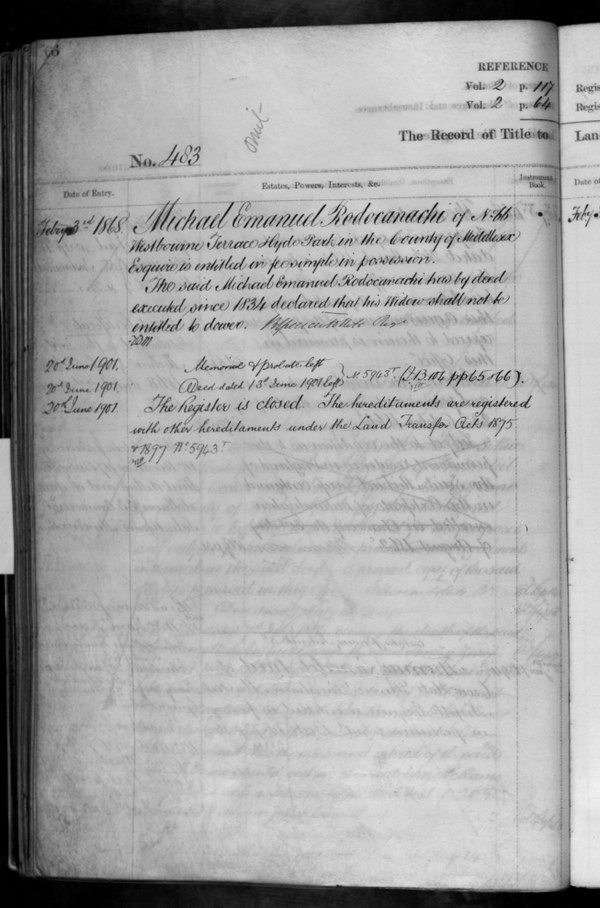 66
REFERENCE
Vol. 2 p. 117
Vol. 2 p. 64
The Record of Title to
No. 483
Date of Entry.
Estates, Powers, Interests, &c.
Instrument Book.
Feby 3rd 1868. Michael Emanuel Rodocanachi of No. 66
Westbourne Terrace Hyde Park in the County of Middlesex
Esquire is entitled in fee simple in possession.
The said Michael Emanuel Rodocanachi has by deed
executed since 1834 declared that his Widow shall not be
entitled to dower.
20th June 1901. Memorial & probate left
20th June 1901 (Deed dated 13th June 1901 left) No 5943T pp 65 & 66).
20th June 1901 The Register is closed. The hereditaments are registered
with other hereditaments under the Land Transfer Acts 1875
& 1897 No 5943T
Regis
Regis
Lan
Date of
Feby 3